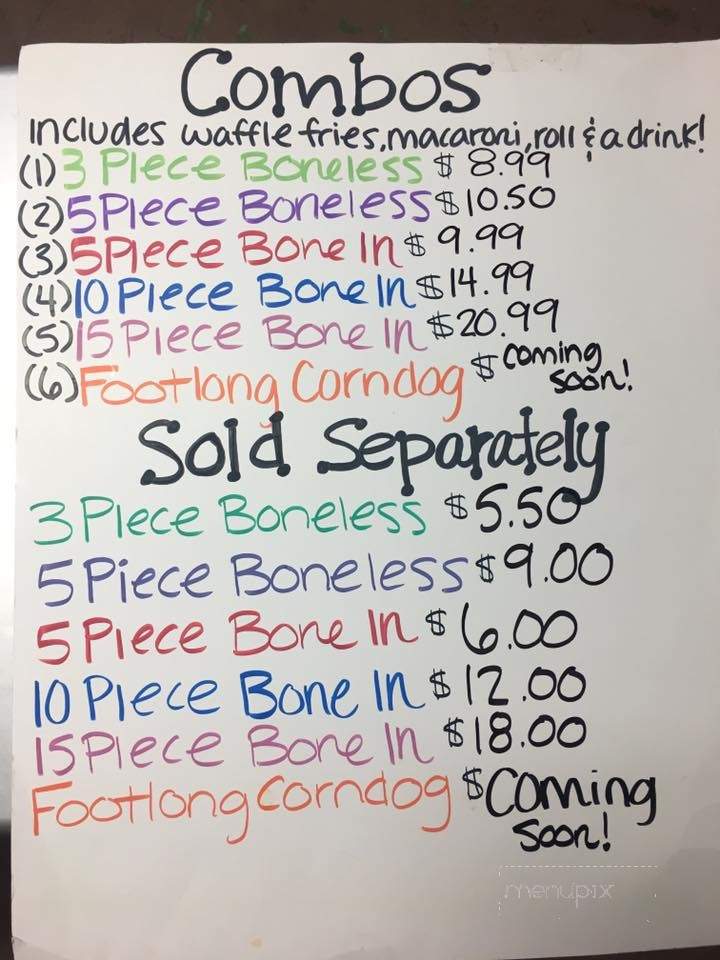 Combos
Includes waffle fries, macaroni, roll & a drink!
(1) 3 Piece Boneless $ 8.99
(2) 5 Piece Boneless $10.50
(3) 5 Piece Bone In $ 9.99
(4) 10 Piece Bone In $14.99
(5) 15 Piece Bone In $20.99
(6) Footlong Corndog $ coming
soon!
Sold Separately
3 Piece Boneless $5.50
5 Piece Boneless $9.00
5 Piece Bone In $6.00
10 Piece Bone In $12.00
15 Piece Bone In $18.00
Footlong Corndog $Coming
soon!
menupix